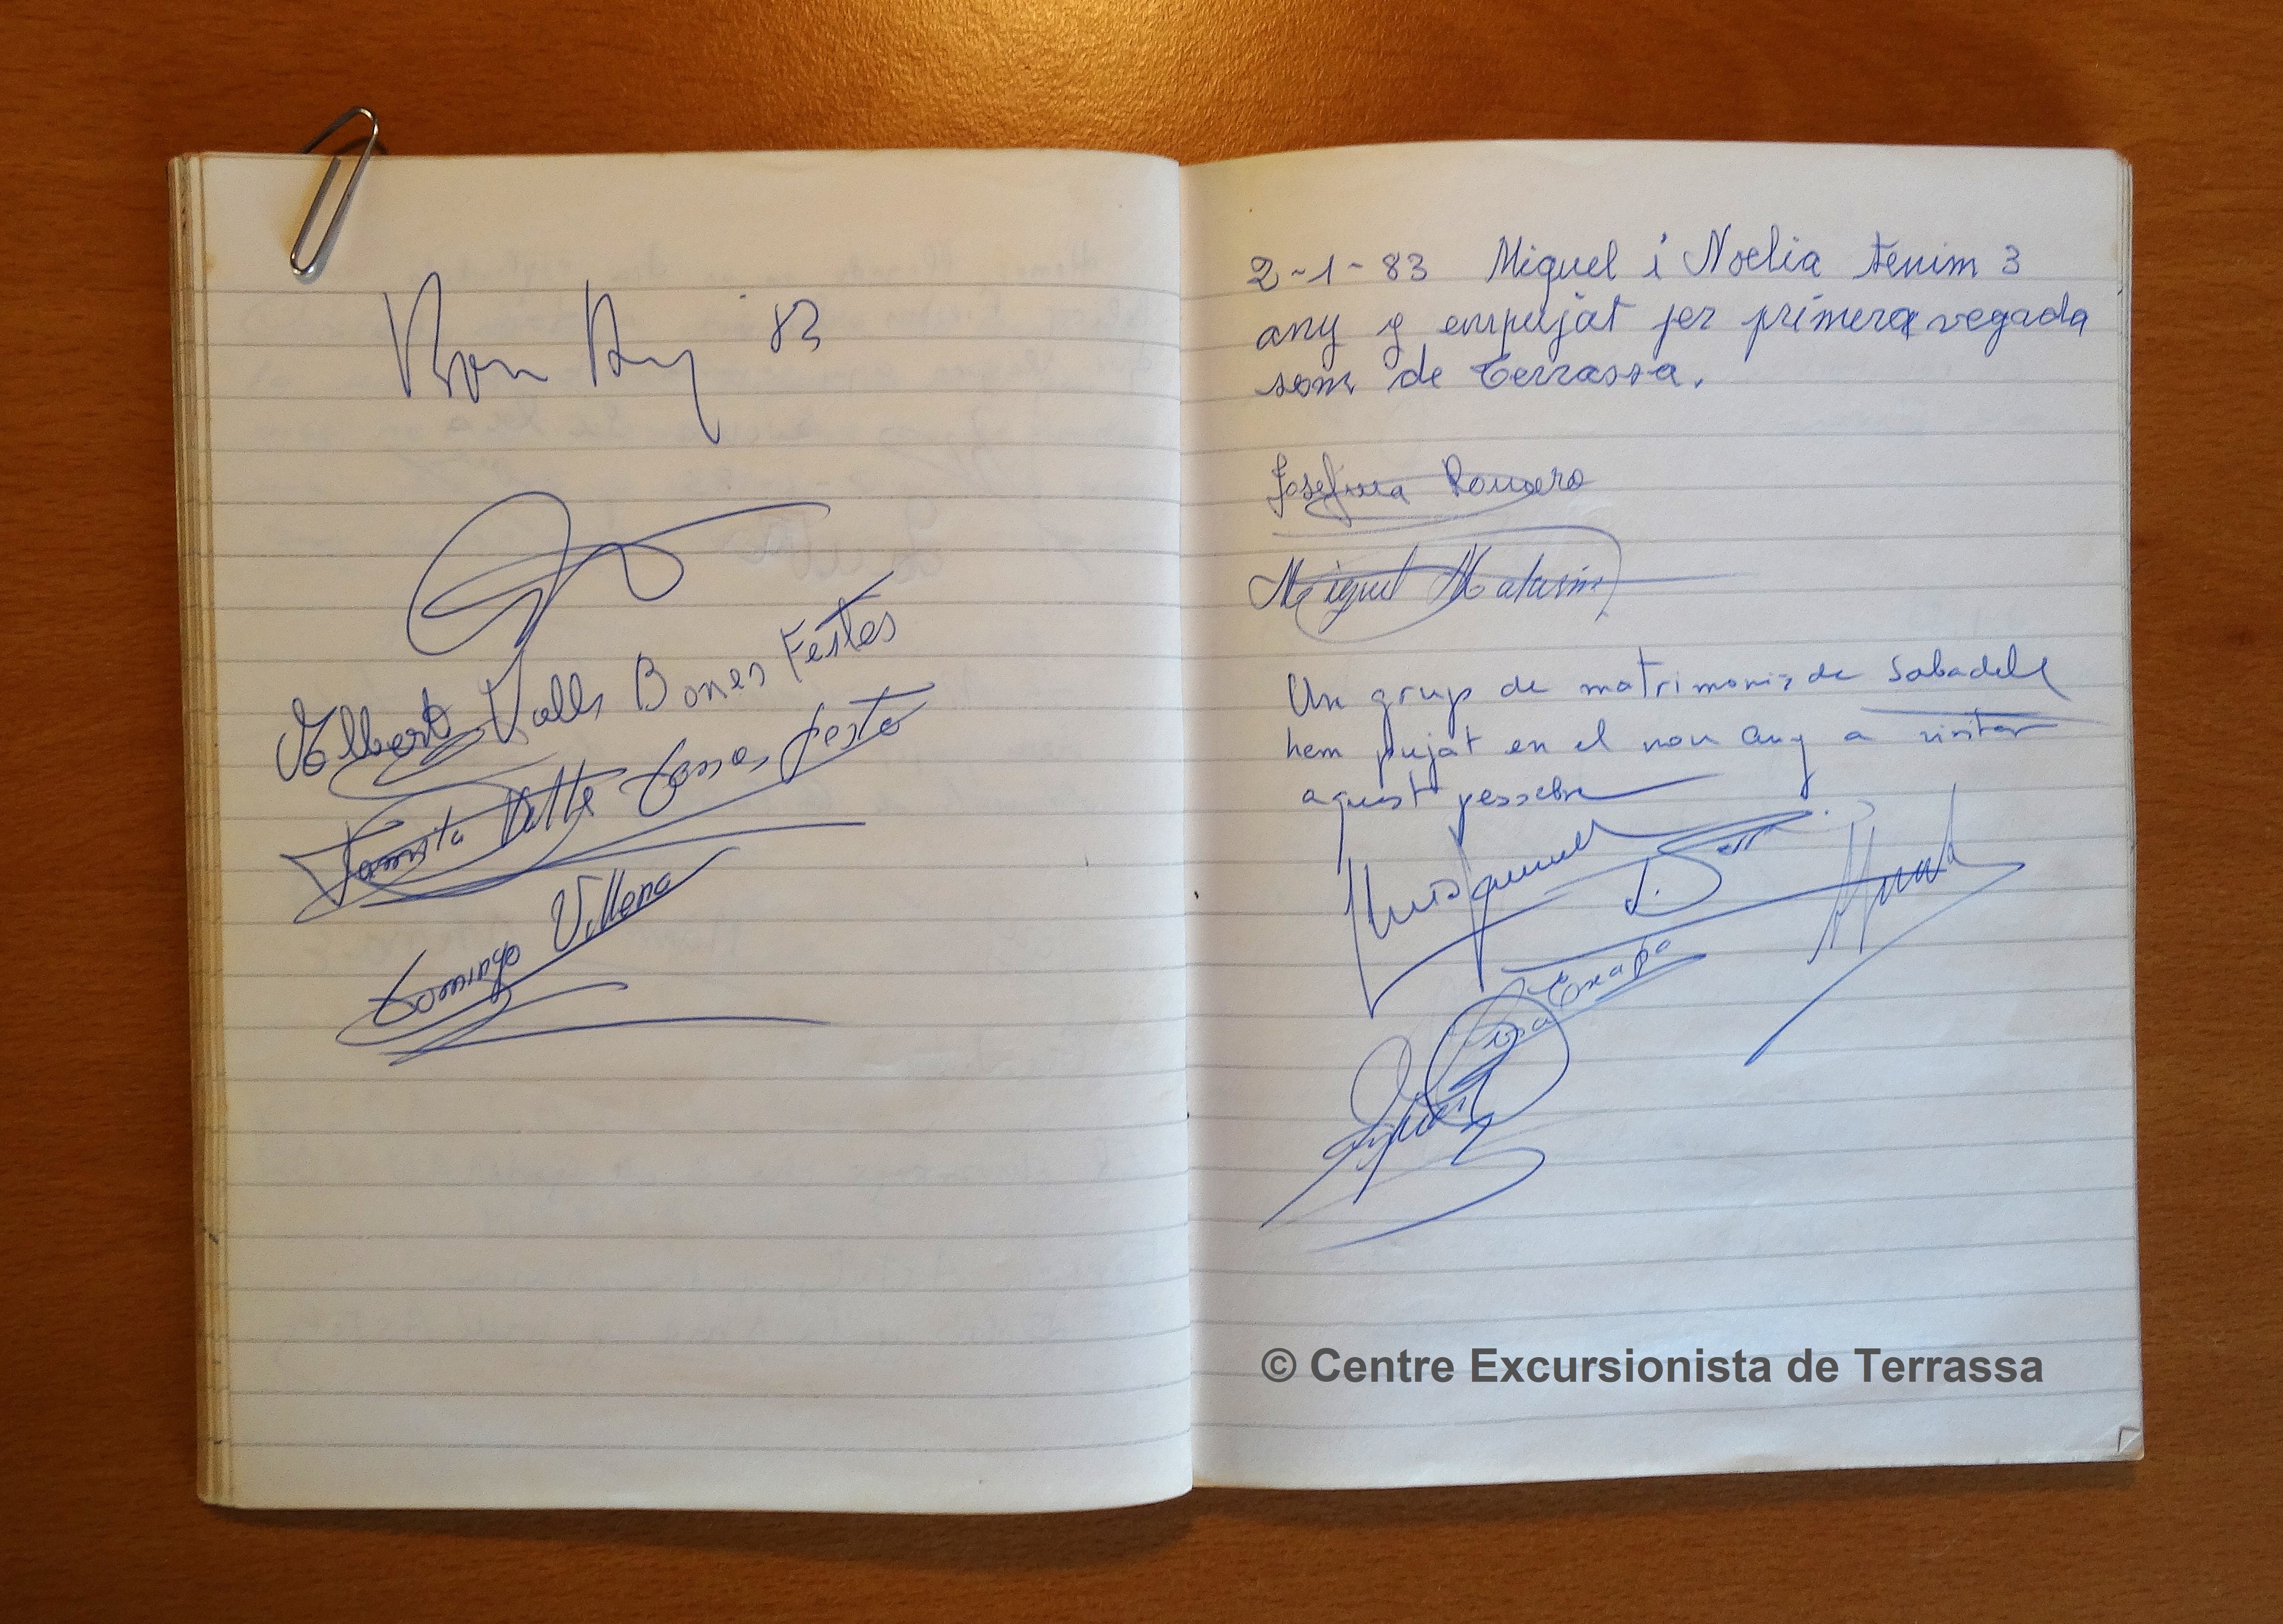 Bon Any 83
Albert Valls Bones Festes
Valls Bones festes
Domingo Villena
2-1-83 Miguel i Noelia tenim 3
any y empujat per primera vegada
som de Terrassa.
Josefina Romero
Miguel
Un grup de matrimonis de Sabadell
hem pujat en el nou any a visitar
aquest pessebre
© Centre Excursionista de Terrassa